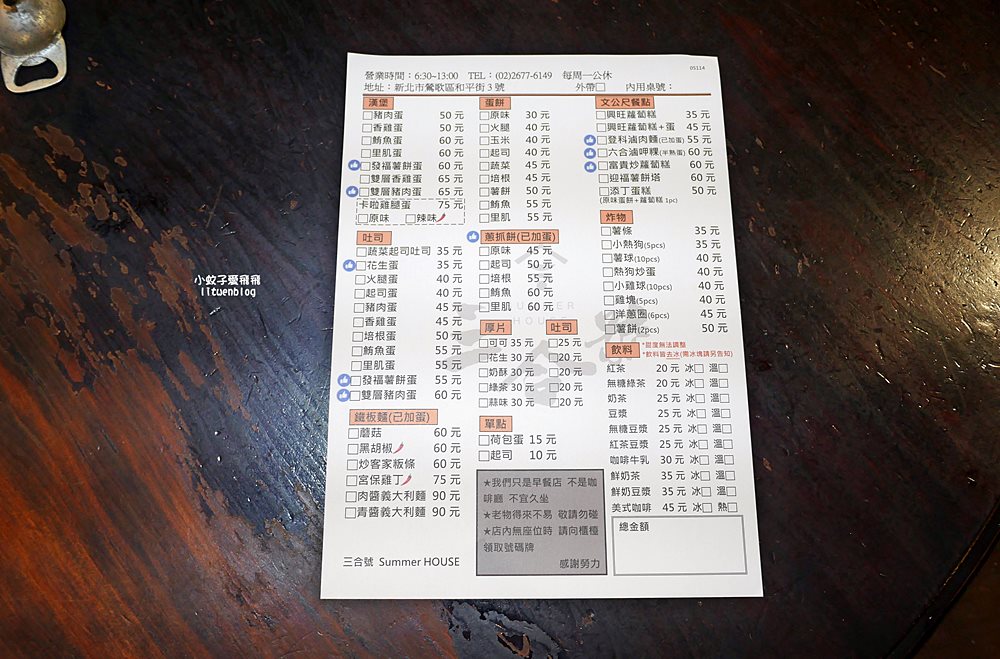 05114
營業時間：6:30~13:00 TEL：(02)2677-6149 每周一公休
地址：新北市鶯歌區和平街3號 外帶□ 內用桌號：
漢堡
□豬肉蛋 50 元
□香雞蛋 50 元
□鮪魚蛋 60 元
□里肌蛋 60 元
□發福薯餅蛋 60 元
□雙層香雞蛋 65 元
□雙層豬肉蛋 65 元
卡啦雞腿蛋 75 元
□原味 □辣味
吐司
□蔬菜起司吐司 35 元
□花生蛋 35 元
□火腿蛋 40 元
□起司蛋 40 元
□豬肉蛋 45 元
□香雞蛋 45 元
□培根蛋 50 元
□鮪魚蛋 55 元
□里肌蛋 55 元
□發福薯餅蛋 55 元
□雙層豬肉蛋 60 元
鐵板麵(已加蛋)
□蘑菇 60 元
□黑胡椒 60 元
□炒客家粄條 60 元
□宮保雞丁 75 元
□肉醬義大利麵 90 元
□青醬義大利麵 90 元
三合號 Summer HOUSE
蛋餅
□原味 30 元
□火腿 40 元
□玉米 40 元
□起司 40 元
□蔬菜 45 元
□培根 45 元
□薯餅 50 元
□鮪魚 55 元
□里肌 55 元
蔥抓餅(已加蛋)
□原味 45 元
□起司 50 元
□培根 55 元
□鮪魚 60 元
□里肌 60 元
厚片 吐司
□可可 35 元 □25 元
□花生 30 元 □20 元
□奶酥 30 元 □20 元
□綠茶 30 元 □20 元
□蒜味 30 元 □20 元
單點
□荷包蛋 15 元
□起司 10 元
★我們只是早餐店 不是咖
啡廳 不宜久坐
★老物得來不易 敬請勿碰
★店內無座位時 請向櫃檯
領取號碼牌
感謝勞力
文公尺餐點
□興旺蘿蔔糕 35 元
□興旺蘿蔔糕+蛋 45 元
□登科滷肉麵(已加蛋) 55 元
□六合滷呷粿(半熟蛋) 60 元
□富貴炒蘿蔔糕 60 元
□迎福薯餅塔 60 元
□添丁蛋糕 50 元
(原味蛋餅+蘿蔔糕 1pc)
炸物
□薯條 35 元
□小熱狗(5pcs) 35 元
□薯球(10pcs) 40 元
□熱狗炒蛋 40 元
□小雞球(10pcs) 40 元
□雞塊(5pcs) 40 元
□洋蔥圈(6pcs) 45 元
□薯餅(2pcs) 50 元
飲料 *甜度無法調整
*飲料皆去冰(需冰塊請另告知)
紅茶 20 元 冰□ 溫□
無糖綠茶 20 元 冰□ 溫□
奶茶 25 元 冰□ 溫□
豆漿 25 元 冰□ 溫□
無糖豆漿 25 元 冰□ 溫□
紅茶豆漿 25 元 冰□ 溫□
咖啡牛乳 30 元 冰□ 溫□
鮮奶茶 35 元 冰□ 溫□
鮮奶豆漿 35 元 冰□ 溫□
美式咖啡 45 元 冰□ 熱□
總金額
小蚊子愛飛飛
lituenblog